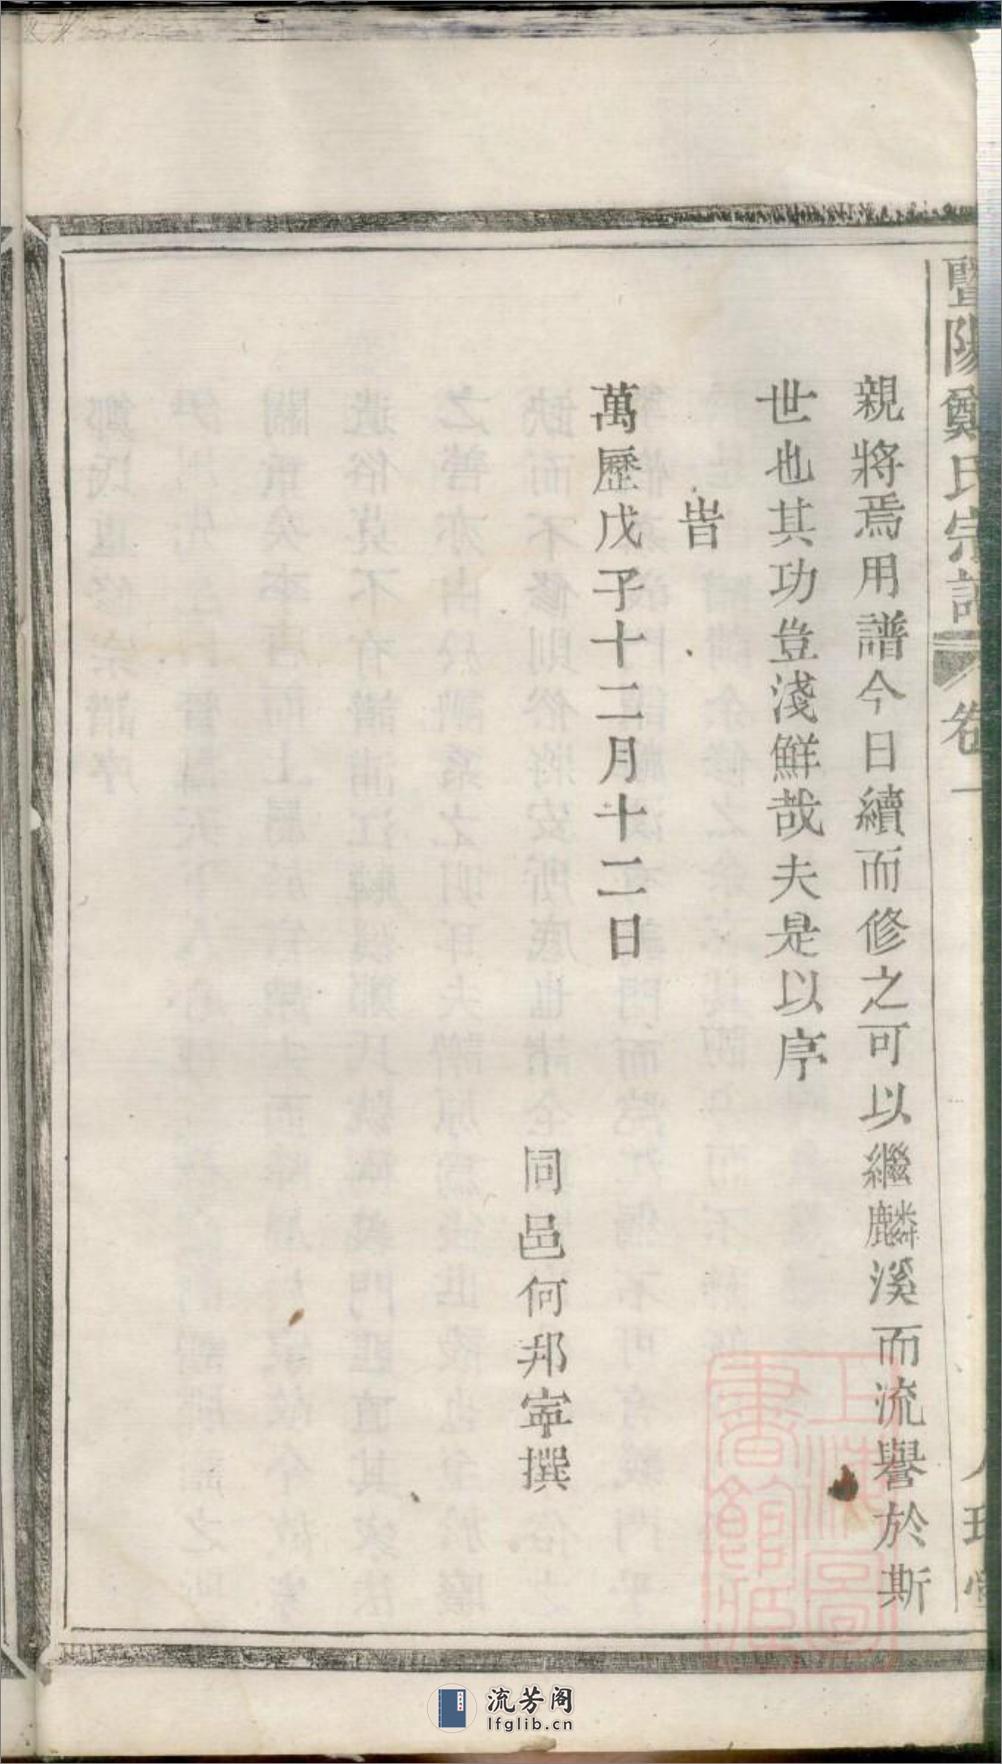 暨陽鄭氏宗譜 卷一
親將焉用譜今日續而修之可以繼麟溪而流譽於斯
世也其功豈淺鮮哉夫是以序
旹
萬歷戊子十二月十二日
同邑何邦寧撰
上海圖書館藏
流芳阁
lfglib.cn